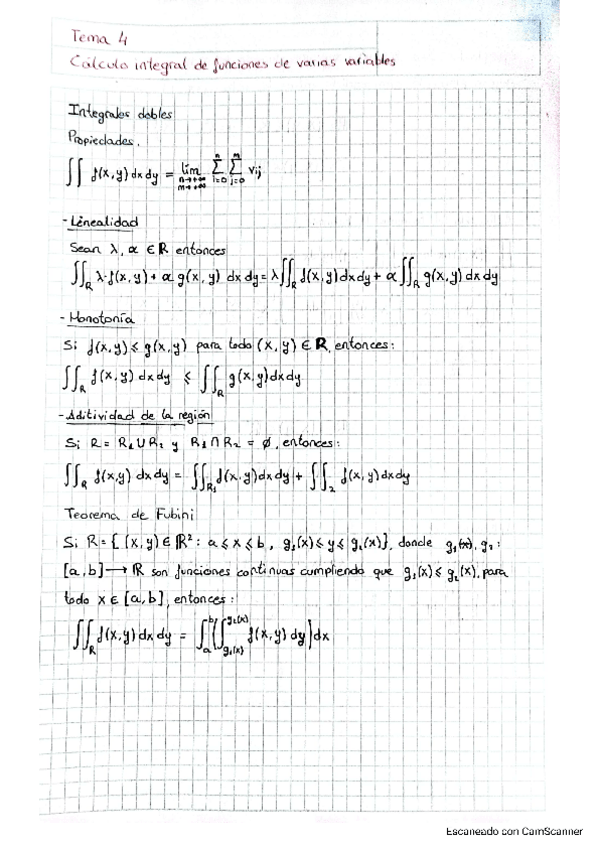 Tema 4
Cálculo integral de funciones de varias variables
Integrales dobles
Propiedades.
∬ f(x,y) dx dy = lim n→+∞ m→+∞ Σ i=0 n Σ j=0 m Vij
- Linealidad
Sean λ, α ∈ ℝ entonces
∬_R λ·f(x,y) + α g(x,y) dx dy = λ∬_R f(x,y) dx dy + α ∬_R g(x,y) dx dy
- Monotonía
Si f(x,y) ≤ g(x,y) para todo (x,y) ∈ R, entonces:
∬_R f(x,y) dx dy ≤ ∬_R g(x,y) dx dy
- Aditividad de la región
Si R = R₁ ∪ R₂ y R₁ ∩ R₂ = ∅, entonces:
∬_R f(x,y) dx dy = ∬_R₁ f(x,y) dx dy + ∬_2 f(x,y) dx dy
Teorema de Fubini
Si R = { (x,y) ∈ ℝ² : a ≤ x ≤ b, g₁(x) ≤ y ≤ g₂(x)}, donde g₁(x), g₂ :
[a,b] → ℝ son funciones continuas cumpliendo que g₁(x) ≤ g₂(x), para
todo x ∈ [a,b], entonces:
∬_R f(x,y) dx dy = ∫_a^b (∫_g₁(x)^g₂(x) f(x,y) dy) dx
Escaneado con CamScanner